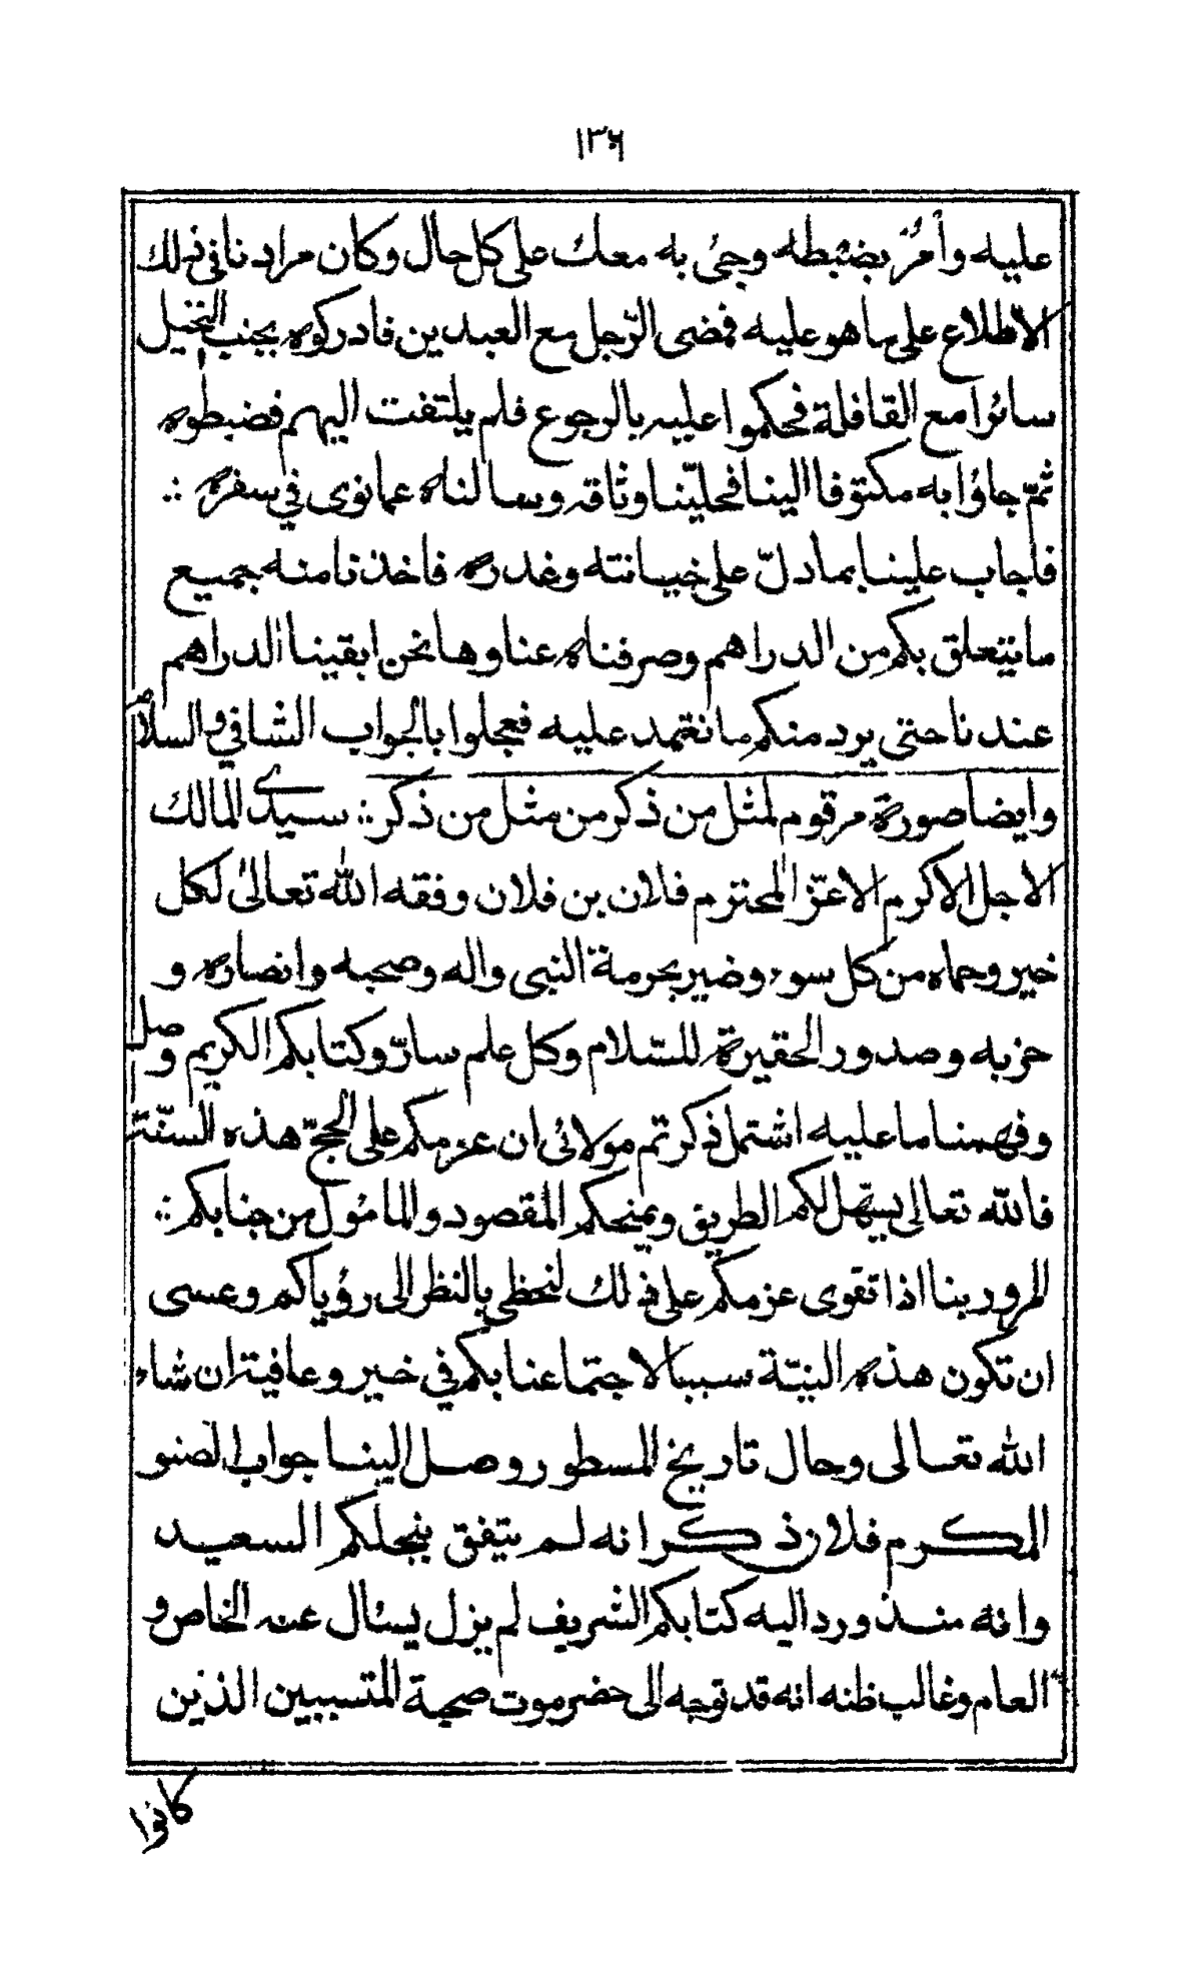 ١٣٦
عليه وأمرٌ بضبطه وجئ به معك على كل حال وكان مرادنا في ذلك
الاطلاع على ما هو عليه فمضى الرّجل مع العبدين فادركوه بجنب النخيل
سائرا مع القافلة فحكموا عليه بالرجوع فلم يلتفت اليهم فضبطوه
ثمّ جاؤا به مكتوفا الينا فحليّنا وثاقه وسالناه عما نوى في سفره ∴
فاجاب علينا بما دلّ على خيانته وغدره فاخذنا منه جميع
ما يتعلق بكم من الدراهم وصرفناه عنا وها نحن ابقينا الدراهم
عندنا حتى يرد منكم ما نعتمد عليه فعجلوا بالجواب الشافي والسلام
وايضا صورة مرقوم لمثل من ذكر من مثل من ذكر ∴ سيدي المالك
الاجل الاكرم الاعزّ المحترم فلان بن فلان وفقه الله تعالى لكل
خير وحماه من كل سوء وضير بحرمة النبى واله وصحبه وانصاره و
حزبه وصدور الحقيرة للسّلام وكل علم سارّ وكتابكم الكريم وصل
وفهمنا ما عليه اشتمل ذكرتم مولائى ان عزمكم على الحجّ هذه السنّة
فالله تعالى يسهّل لكم الطريق ويمنحكم المقصود والمامُول من جنابكم ∴
المرور بنا اذا تقوى عزمكم على ذلك لنحظى بالنظر الى رؤياكم وعسى
ان تكون هذه النيّة سببا لاجتماعنا بكم في خير وعافية ان شاء
الله تعالى وحال تاريخ المسطور وصل الينا جواب الصنو
المكرم فلان ذكر انه لم يتفق بنجلكم السعيد
وانه منذ ورد اليه كتابكم الشريف لم يزل يسئال عنه الخاص و
العام وغالب ظنه انه قد توجه الى حضرموت صحبة المتسببين الذين
كانوا